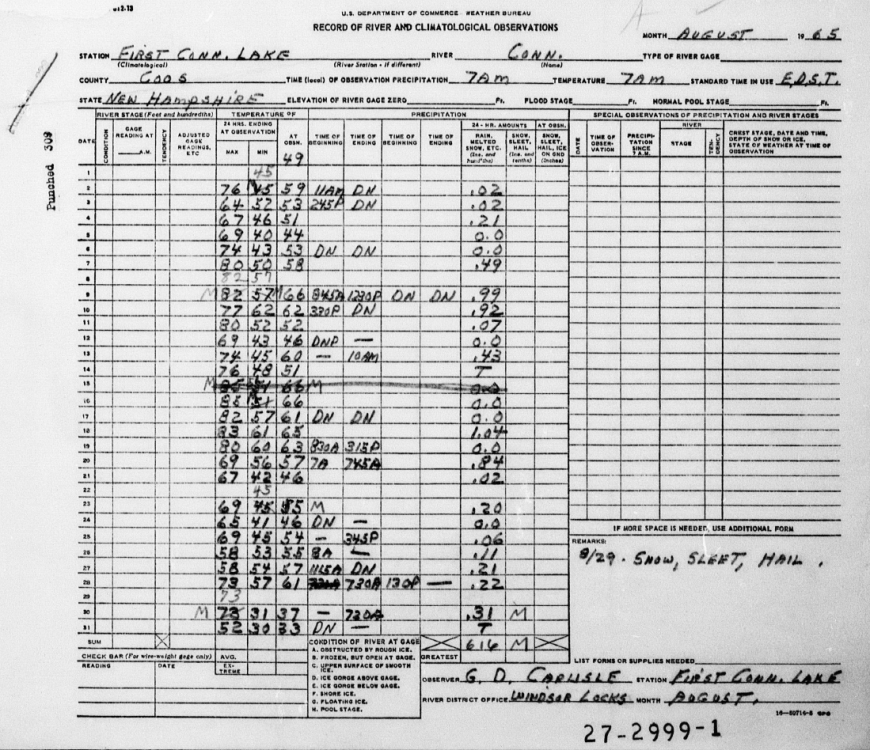 U.S. DEPARTMENT OF COMMERCE WEATHER BUREAU
RECORD OF RIVER AND CLIMATOLOGICAL OBSERVATIONS
MONTH AUGUST 1965
STATION FIRST CONN. LAKE RIVER CONN. TYPE OF RIVER GAGE
(Climatological) (River Station - if different) (Name)
COUNTY COOS TIME (local) OF OBSERVATION PRECIPITATION 7AM TEMPERATURE 7AM STANDARD TIME IN USE E.D.S.T.
STATE NEW HAMPSHIRE ELEVATION OF RIVER GAGE ZERO Ft. FLOOD STAGE Ft. NORMAL POOL STAGE Ft.
Punched 309
RIVER STAGE (Feet and hundredths) TEMPERATURE OF PRECIPITATION SPECIAL OBSERVATIONS OF PRECIPITATION AND RIVER STAGES
DATE CONDITION GAGE READING AT A.M. TENDENCY ADJUSTED GAGE READINGS, ETC 24 HRS. ENDING AT OBSERVATION MAX MIN AT OBSN. TIME OF BEGINNING TIME OF ENDING TIME OF BEGINNING TIME OF ENDING 24-HR. AMOUNTS RAIN, MELTED SNOW, ETC. (Ins. and hundredths) SNOW, SLEET, HAIL (Ins. and tenths) AT OBSN. SNOW, SLEET, HAIL, ICE ON GND (Inches) DATE TIME OF OBSERVATION PRECIPITATION SINCE 7 A.M. RIVER STAGE TENDENCY CREST STAGE, DATE AND TIME, DEPTH OF SNOW OR ICE, STATE OF WEATHER AT TIME OF OBSERVATION
49
1 45
2 76 45 59 11AM DN .02
3 64 52 53 245P DN .02
4 67 46 51 .21
5 69 40 44 0.0
6 74 43 53 DN DN 0.0
7 80 50 58 .49
8 82 57
9 M 82 57 M 66 845A 1230P DN DN .99
10 77 62 62 330P DN .92
11 80 52 52 .07
12 69 43 46 DNP — 0.0
13 74 45 60 — 10AM .43
14 76 48 51 T
15 M 66 M 0.0
16 85 51 66 0.0
17 82 57 61 DN DN 0.0
18 83 61 65 1.04
19 80 60 63 830A 315P 0.0
20 69 56 57 7A 745A .84
21 67 42 46 .02
22 45
23 69 45 55 M .20
24 65 41 46 DN — 0.0
25 69 45 54 — 345P .06
26 58 53 55 8A — .11
27 58 54 57 1115A DN .21
28 73 57 61 730A 130P — .22
29 73
30 M 73 31 37 — 730A .31 M
31 52 30 33 DN — T
SUM 616 M
IF MORE SPACE IS NEEDED, USE ADDITIONAL FORM
REMARKS:
8/29 - SNOW, SLEET, HAIL.
CHECK BAR (For wire-weight gage only) AVG. GREATEST
READING DATE EXTREME
CONDITION OF RIVER AT GAGE
A. OBSTRUCTED BY ROUGH ICE.
B. FROZEN, BUT OPEN AT GAGE.
C. UPPER SURFACE OF SMOOTH ICE.
D. ICE GORGE ABOVE GAGE.
E. ICE GORGE BELOW GAGE.
F. SHORE ICE.
G. FLOATING ICE.
H. POOL STAGE.
LIST FORMS OR SUPPLIES NEEDED
OBSERVER G. D. CARLISLE STATION FIRST CONN. LAKE
RIVER DISTRICT OFFICE WINDSOR LOCKS MONTH AUGUST.
27-2999-1